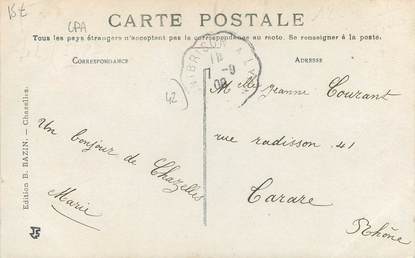 15€
CPA
CARTE POSTALE
Tous les pays étrangers n'acceptent pas la correspondance au recto. Se renseigner à la poste.
CORRESPONDANCE
ADRESSE
42
Un bonjour de Chazelles
Marie
Melle Jeanne Courant
rue radisson 41
Tarare
Rhône
Edition B. BAZIN. — Chazelles.
7-9